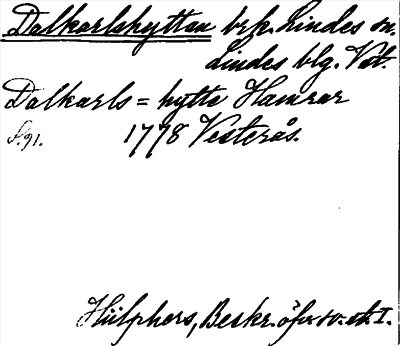 Dalkarlshyttan brk. Lindes sn.
Lindes blg. Vstm.
Dalkarls = hytte Hamrar
S. 91. 1778 Vesterås.
Hülphers, Beskr. öfver sv. st. I.